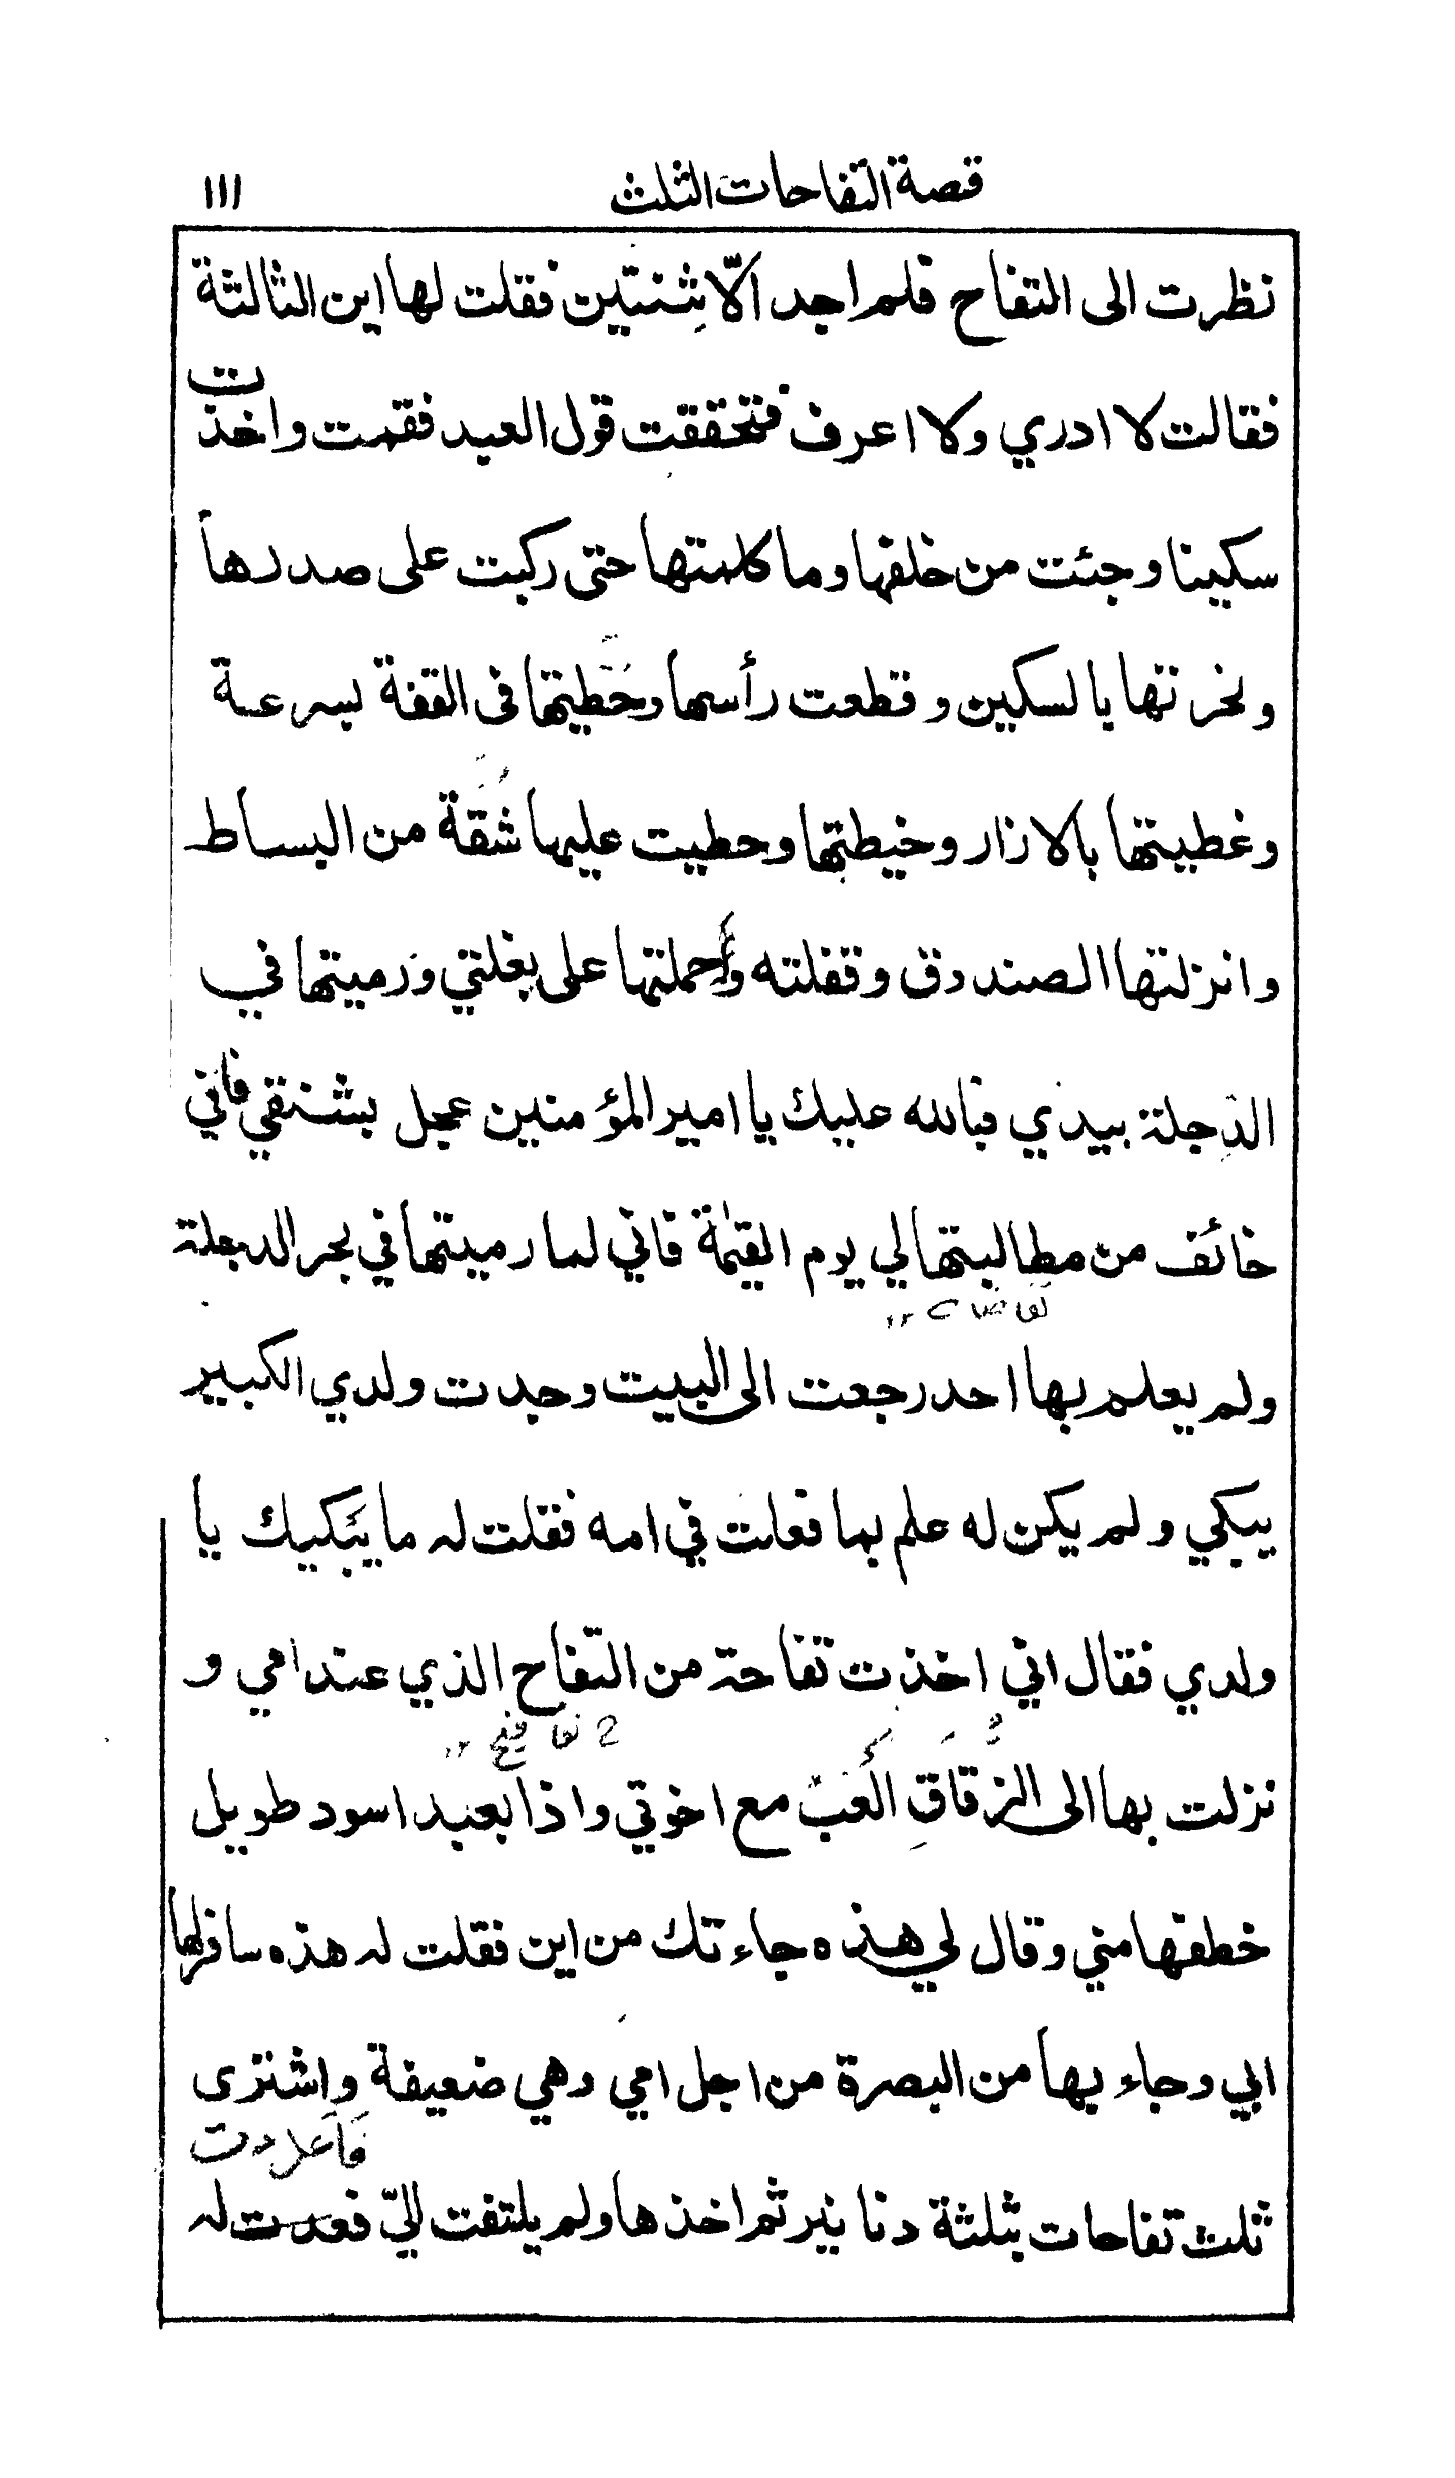 قصة التفاحات الثلث ١١١
نظرت الى التفاح فلم اجد الّا ثنتين فقلت لها اين الثالثة
فقالت لا ادري ولا اعرف فتحققت قول العبد فقمت واخذت
سكينا وجئت من خلفها وما كلمتها حتى ركبت على صدرها
ونحرتها بالسكين وقطعت رأسها وحطيتها فى القفة بسرعة
وغطيتها بالازار وخيطتها وحطيت عليها شُقة من البساط
وانزلتها الصندوق وقفلته وأحملتها على بغلتي ورميتها في
الدِجلة بيدي فبالله عليك يا امير المؤمنين عجل بشنقي فاني
خائف من مطالبتها لي يوم القيٰمة فاني لما رميتها في بحر الدجلة
ولم يعلم بها احد رجعت الى البيت وجدت ولدي الكبير
يبكي ولم يكن له علم بما فعلت في امه فقلت له ما يبكيك يا
ولدي فقال اني اخذت تفاحة من التفاح الذي عند امي و
نزلت بها الى الزقاقِ العب مع اخوتي واذا بعبد اسود طويل
خطفها مني وقال لي هذه جاءتك من اين فقلت له هذه سافر لها
ابي وجاء بها من البصرة من اجل امي وهي ضعيفة واشترى
فأعدت
ثلث تفاحات بثلثة دنانير ثم اخذها ولم يلتفت اليّ فعدت له